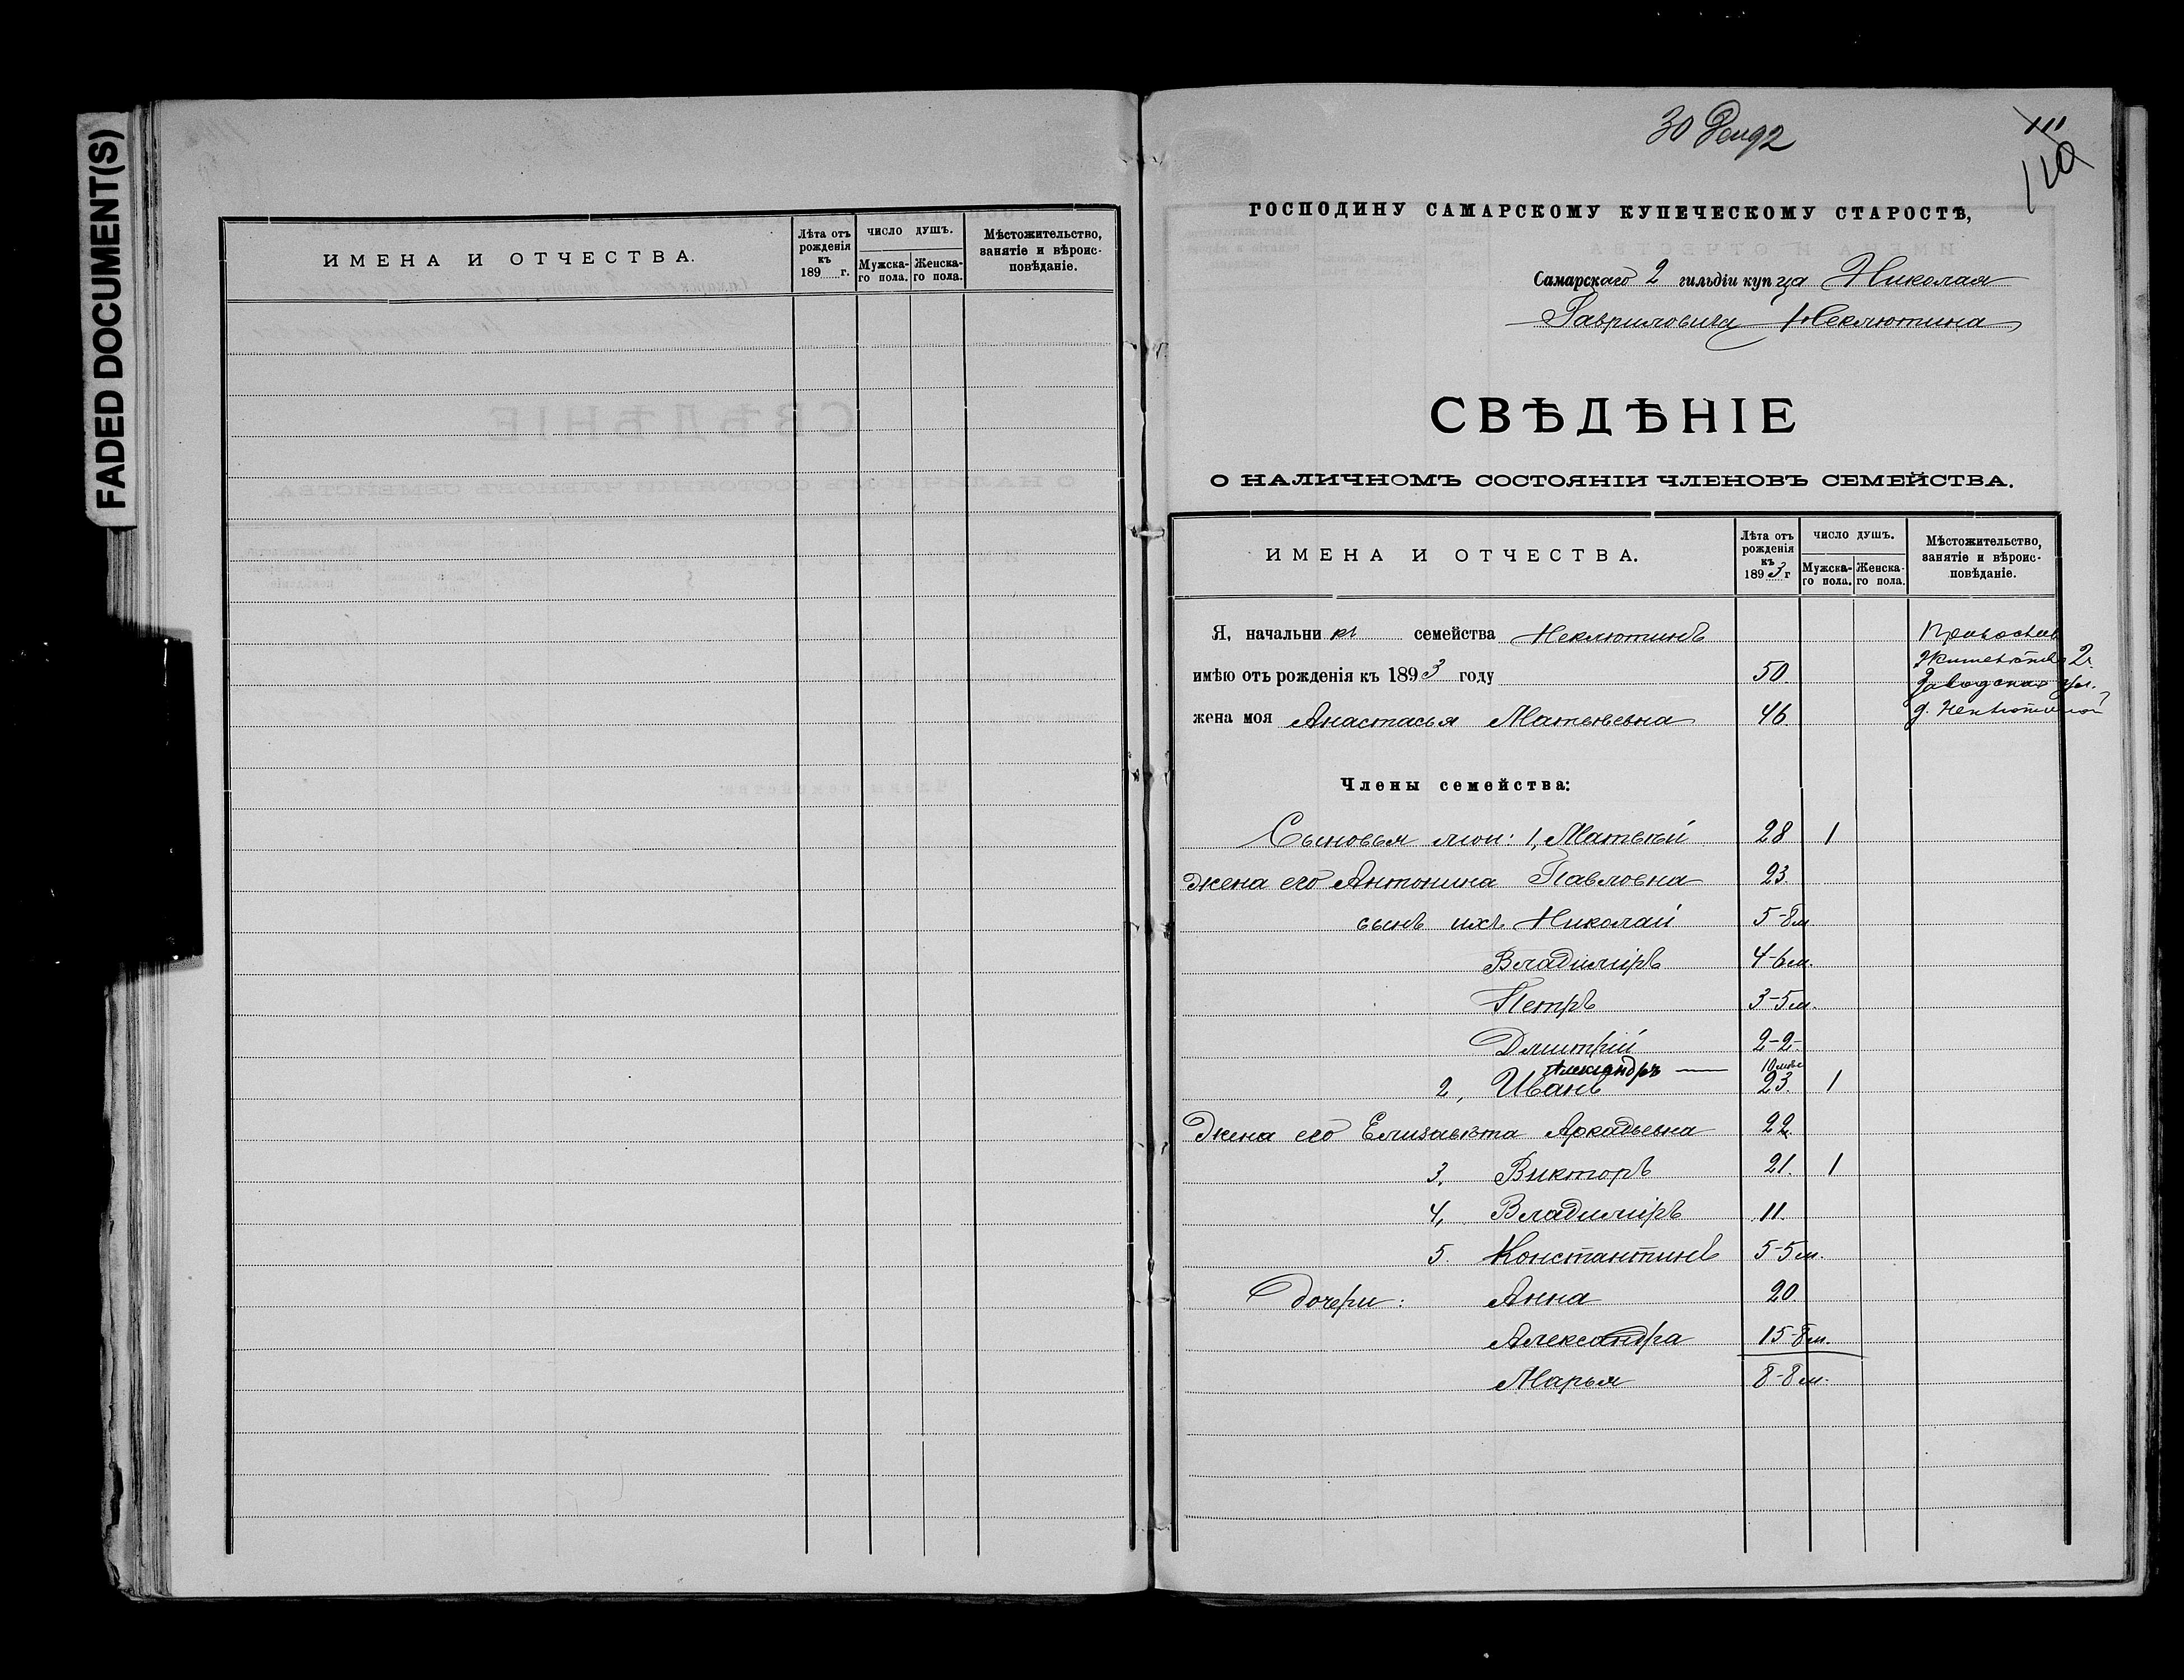 FADED DOCUMENT(S)
ИМЕНА И ОТЧЕСТВА.
Лѣта отъ рожденія къ 189 г.
ЧИСЛО ДУШЪ.
Мужска-го пола.
Женска-го пола.
Мѣстожительство, занятіе и вѣроис-повѣданіе.
30 Дек 92
111
110
ГОСПОДИНУ САМАРСКОМУ КУПЕЧЕСКОМУ СТАРОСТѢ,
Самарскаго 2 гильдіи купца Николая
Гавриловича Неклютина
СВѢДѢНІЕ
О НАЛИЧНОМЪ СОСТОЯНІИ ЧЛЕНОВЪ СЕМЕЙСТВА.
ИМЕНА И ОТЧЕСТВА.
Лѣта отъ рожденія къ 1893 г
ЧИСЛО ДУШЪ.
Мужска-го пола.
Женска-го пола.
Мѣстожительство, занятіе и вѣроис-повѣданіе.
Я, начальникъ семейства Неклютинъ
имѣю отъ рожденія къ 1893 году 50
жена моя Анастасья Матвѣевна 46
Заводская ул.
д. Неклютиной
Члены семейства:
Сыновья мои: 1, Матвѣй 28 1
жена его Антонина Павловна 23.
сынъ ихъ Николай 5-8м
Владиміръ 4-6м.
Петръ 3-5м.
Дмитрій 2-2-
Александръ — 10 мѣс
2, Иванъ 23. 1
Жена его Елизавѣта Аркадьевна 22.
3. Викторъ 21. 1
4, Владиміръ 11.
5. Константинъ 5-5м.
Дочери: Анна 20.
Александра 15-8м.
Марья 8-8м.